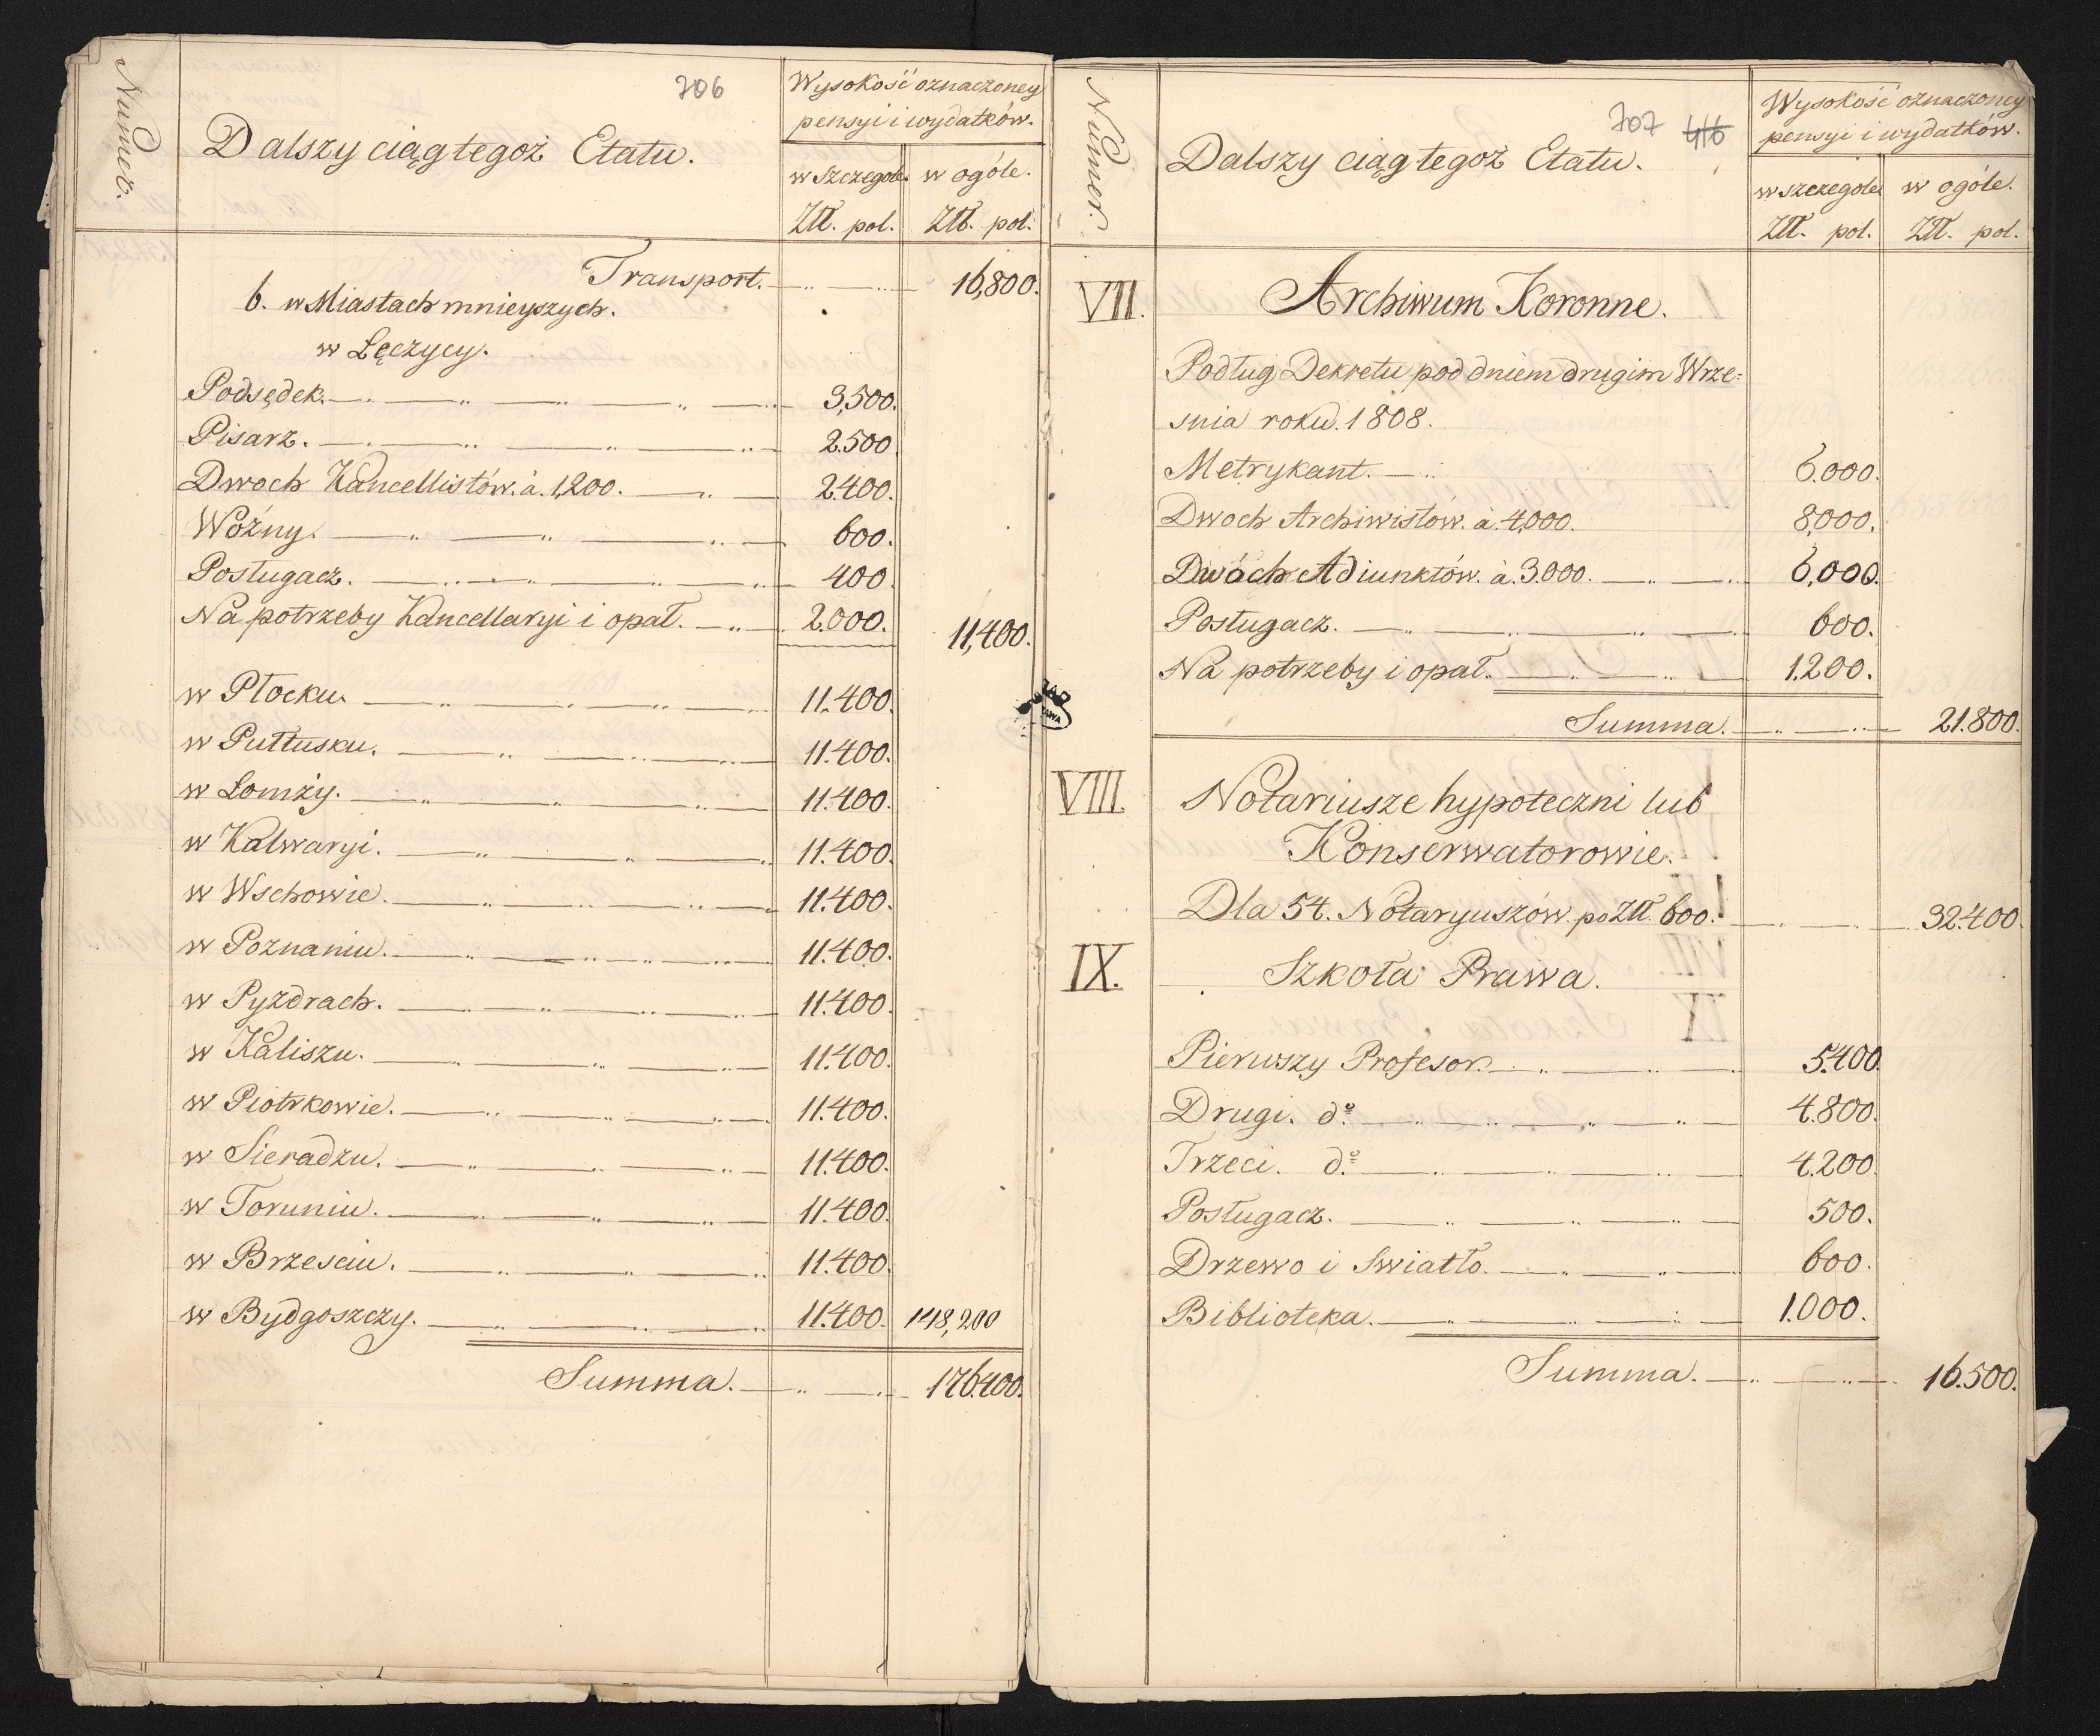 Numer.
706
Dalszy ciąg tegoż Etatu.
Wysokość oznaczoney
pensyi i wydatków.
w szczegole. w ogóle.
Złł. pol. Złł. pol.
Transport. 16,800.
b. w Miastach mnieyszych.
w Łęczycy.
Podsędek. 3,500.
Pisarz. 2.500
Dwoch Kancellistów. à. 1,200. 2.400.
Woźny. 600.
Posługacz. 400.
Na potrzeby Kancellaryi i opał. 2.000. 11,400.
w Płocku. 11.400.
w Pułtusku. 11.400.
w Łomży. 11.400.
w Kalwaryi. 11.400.
w Wschowie. 11.400.
w Poznaniu. 11.400.
w Pyzdrach. 11.400.
w Kaliszu. 11.400.
w Piotrkowie. 11.400.
w Sieradzu. 11.400.
w Toruniu. 11.400.
w Brzesciu. 11.400.
w Bydgoszczy. 11.400. 148,200
Summa. 176.400.
Numer.
707 416
Dalszy ciąg tegoż Etatu.
Wysokość oznaczoney
pensyi i wydatków.
w szczegole w ogóle.
Złł. pol. Złł. pol.
VII. Archiwum Koronne.
Podług Dekretu pod dniem drugim Wrze=
snia roku. 1808.
Metrykant. 6.000.
Dwoch Archiwistów. à. 4,000. 8,000.
Dwóch Adiunktów. à. 3.000. 6,000.
Posługacz. 600.
Na potrzeby i opał. 1.200.
Summa. 21.800.
VIII. Notariusze hypoteczni lub
Konserwatorowie.
Dla 54. Notaryuszów. po Złł. 600. 32.400.
IX. Szkoła Prawa.
Pierwszy Profesor. 5.400.
Drugi. do. 4.800.
Trzeci. do. 4.200.
Posługacz. 500.
Drzewo i Swiatło. 600.
Biblioteka. 1.000.
Summa. 16.500.